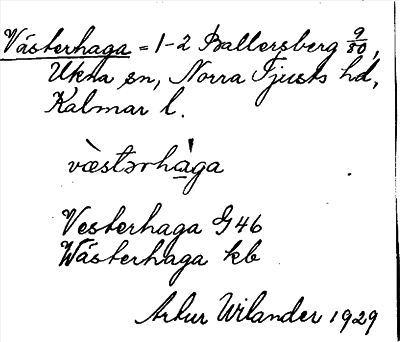 Västerhaga = 1-2 Ballersberg 9/80,
Ukna sn, Norra Tjusts hd,
Kalmar l.
væ̀stərhága
Vesterhaga G46
Wästerhaga kb
Artur Wilander 1929